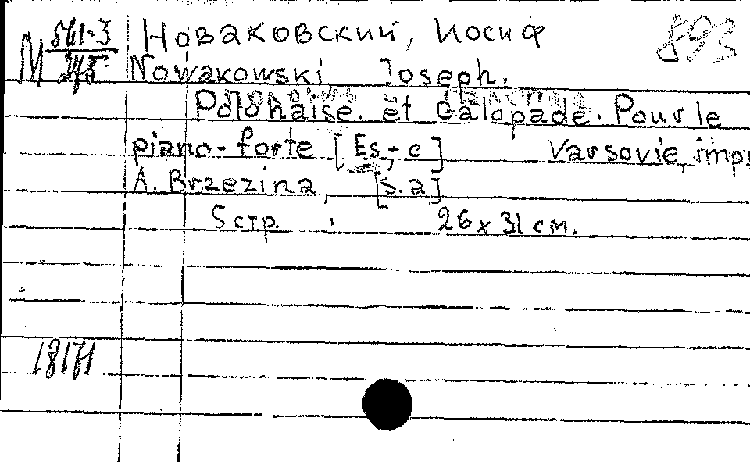 М 561-3 Новаковский, Иосиф 893
245 Nowakowski Joseph.
Polonaise et Galopade. Pour le
piano-forte [Es, - c] Varsovie, impr
A. Brzezina, [s.a]
5 стр. 26 x 31 см.
18171